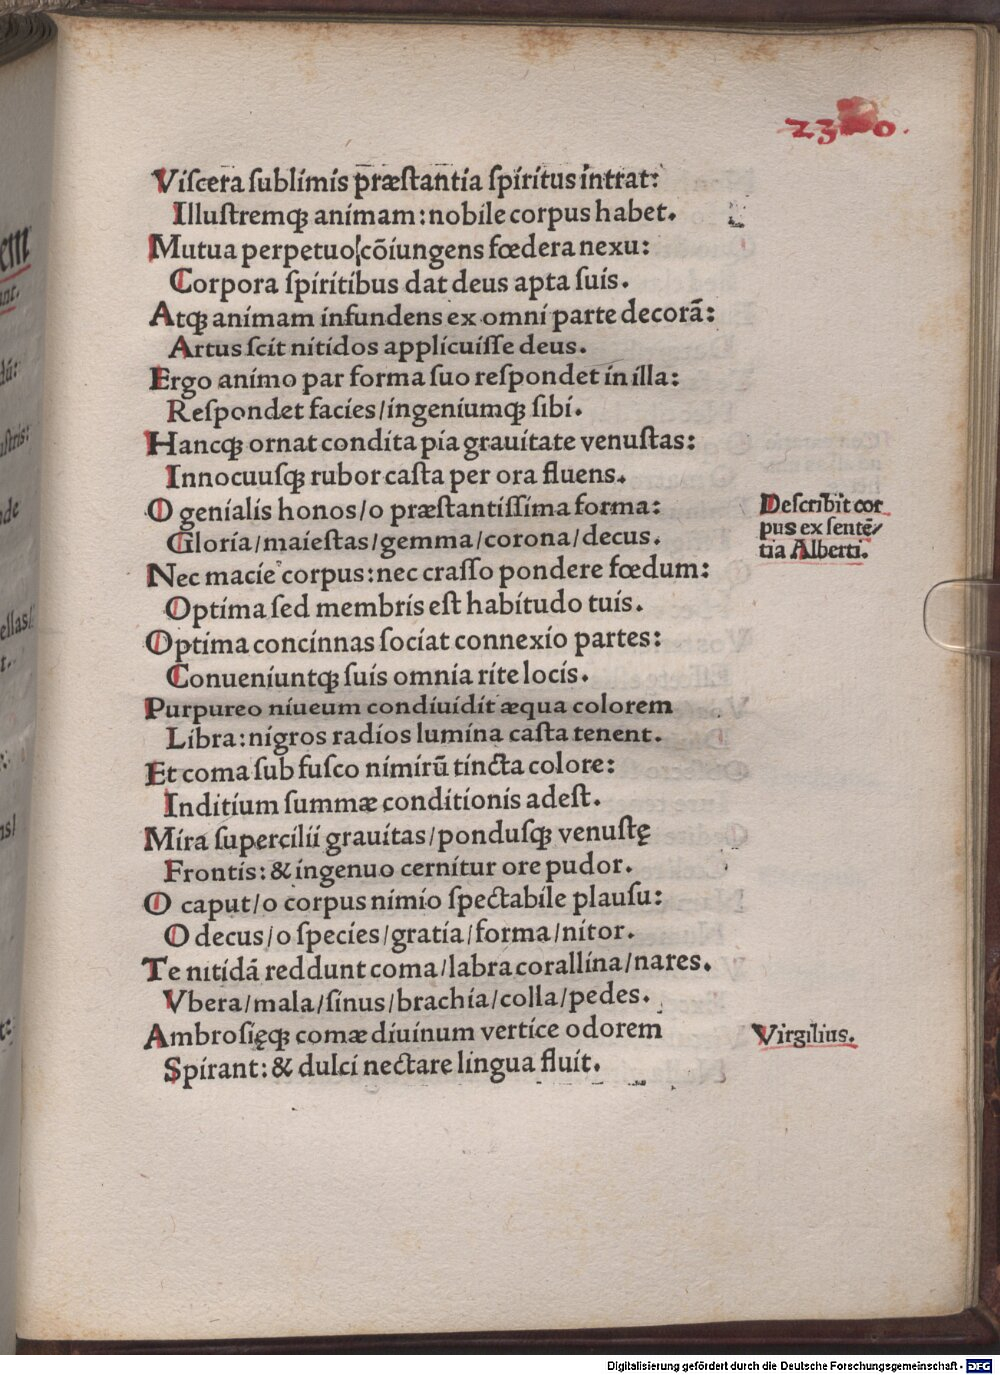 Viſcera ſublimis præſtantia ſpiritus intrat:
Illuſtremqꝫ animam: nobile corpus habet.
Mutua perpetuo/cõiungens fœdera nexu:
Corpora ſpiritibus dat deus apta ſuis.
Atqꝫ animam infundens ex omni parte decorã:
Artus ſcit nitidos applicuiſſe deus.
Ergo animo par forma ſuo reſpondet in illa:
Reſpondet facies/ingeniumqꝫ ſibi.
Hancqꝫ ornat condita pia grauitate venuſtas:
Innocuuſqꝫ rubor caſta per ora fluens.
O genialis honos/o præſtantiſſima forma:
Gloria/maieſtas/gemma/corona/decus.
Deſcribit cor
pus ex ſentẽ/
tia Alberti.
Nec macie corpus: nec craſſo pondere fœdum:
Optima ſed membris eſt habitudo tuis.
Optima concinnas ſociat connexio partes:
Conueniuntqꝫ ſuis omnia rite locis.
Purpureo niueum condiuidit æqua colorem
Libra: nigros radios lumina caſta tenent.
Et coma ſub fuſco nimirũ tincta colore:
Inditium ſummæ conditionis adeſt.
Mira ſupercilii grauitas/ponduſqꝫ venuſtę
Frontis: & ingenuo cernitur ore pudor.
O caput/o corpus nimio ſpectabile plauſu:
O decus/o ſpecies/gratia/forma/nitor.
Te nitidã reddunt coma/labra corallina/nares.
Vbera/mala/ſinus/brachia/colla/pedes.
Ambroſięqꝫ comæ diuinum vertice odorem
Virgilius.
Spirant: & dulci nectare lingua fluit.
Digitalisierung gefördert durch die Deutsche Forschungsgemeinschaft - DFG